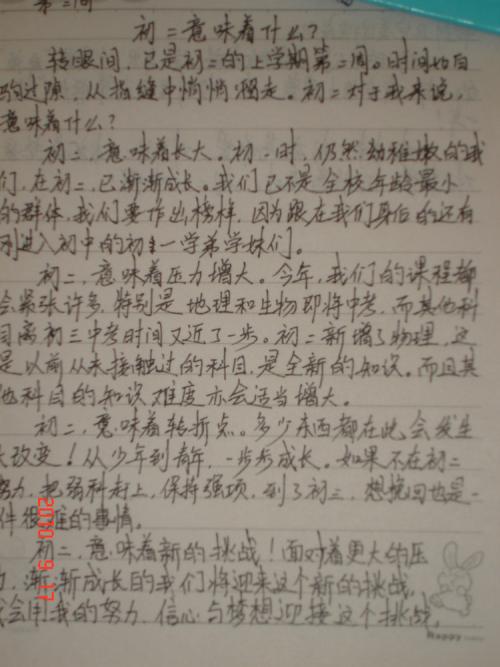 第二周
初二意味着什么?
转眼间,已是初二的上学期第二周。时间如白
驹过隙,从指缝中悄悄溜走。初二对于我来说,
意味着什么?
初二,意味着长大。初一时,仍然幼稚嫩的我
们,在初二,已渐渐成长。我们已不是全校年龄最小
的群体,我们要作出榜样,因为跟在我们身后的还有
刚进入初中的初一学弟学妹们。
初二,意味着压力增大。今年,我们的课程都
会紧张许多,特别是地理和生物即将中考,而其他科
目离初三中考时间又近了一步。初二新增了物理,这
是以前从未接触过的科目,是全新的知识。而且其
他科目的知识难度亦会适当增大。
初二,意味着转折点。多少东西都在此会发生
大改变!从少年到青年,一步步成长。如果不在初二
努力,把弱科赶上,保持强项,到了初三,想挽回也是一
件很难的事情。
初二,意味着新的挑战!面对着更大的压
力,渐渐成长的我们将迎来这个新的挑战,
我会用我的努力、信心与梦想迎接这个挑战,
2010 9 17
Happy